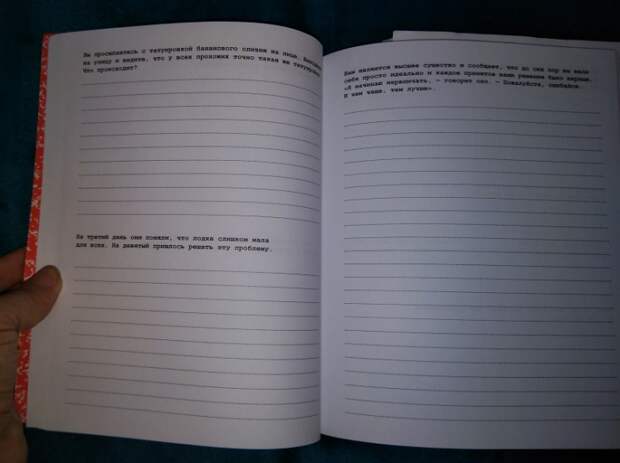 Вы просыпаетесь с татуировкой бананового слизня на лице. Выходите
на улицу и видите, что у всех прохожих точно такая же татуировка.
Что происходит?
На третий день они поняли, что лодка слишком мала
для всех. На девятый пришлось решать эту проблему.
Вам является высшее существо и сообщает, что до сих пор вы вели
себя просто идеально и каждое принятое вами решение было верным.
«Я начинаю нервничать, – говорит оно. – Пожалуйста, ошибайся.
И чем чаще, тем лучше».